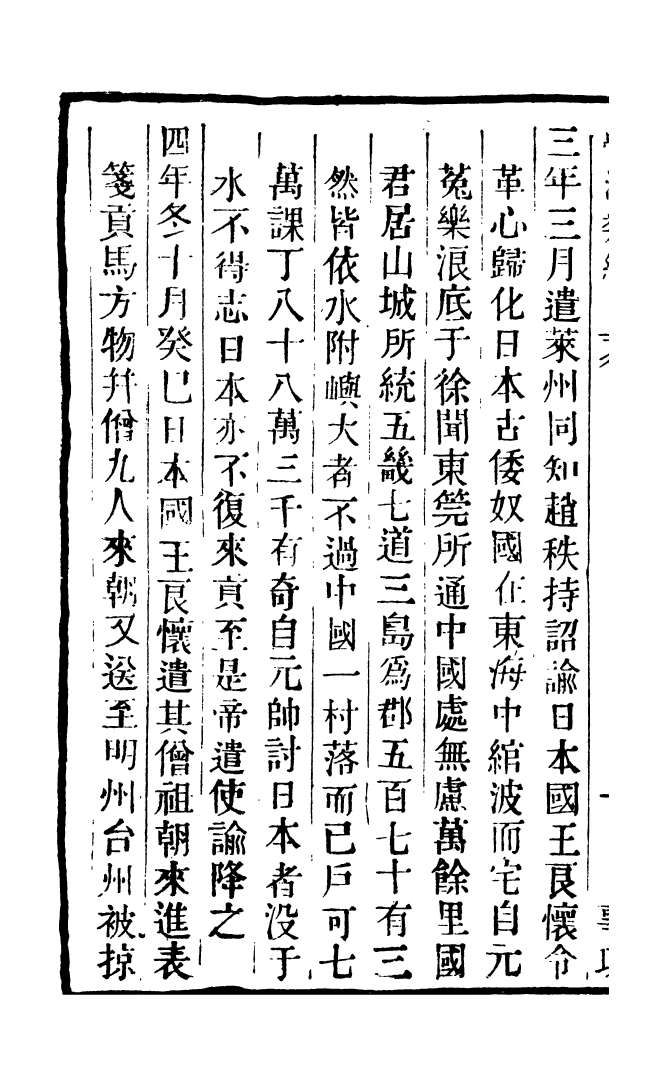 三年三月遣萊州同知趙秩持詔諭日本國王良懷令
革心歸化日本古倭奴國在東海中綰波而宅自元
菟樂浪底于徐聞東筦所通中國處無慮萬餘里國
君居山城所統五畿七道三島爲郡五百七十有三
然皆依水附嶼大者不過中國一村落而已戶可七
萬課丁八十八萬三千有奇自元帥討日本者没于
水不得志日本亦不復來貢至是帝遣使諭降之
四年冬十月癸巳日本國王良懷遣其僧祖朝來進表
箋貢馬方物幷僧九人來朝又送至明州台州被掠